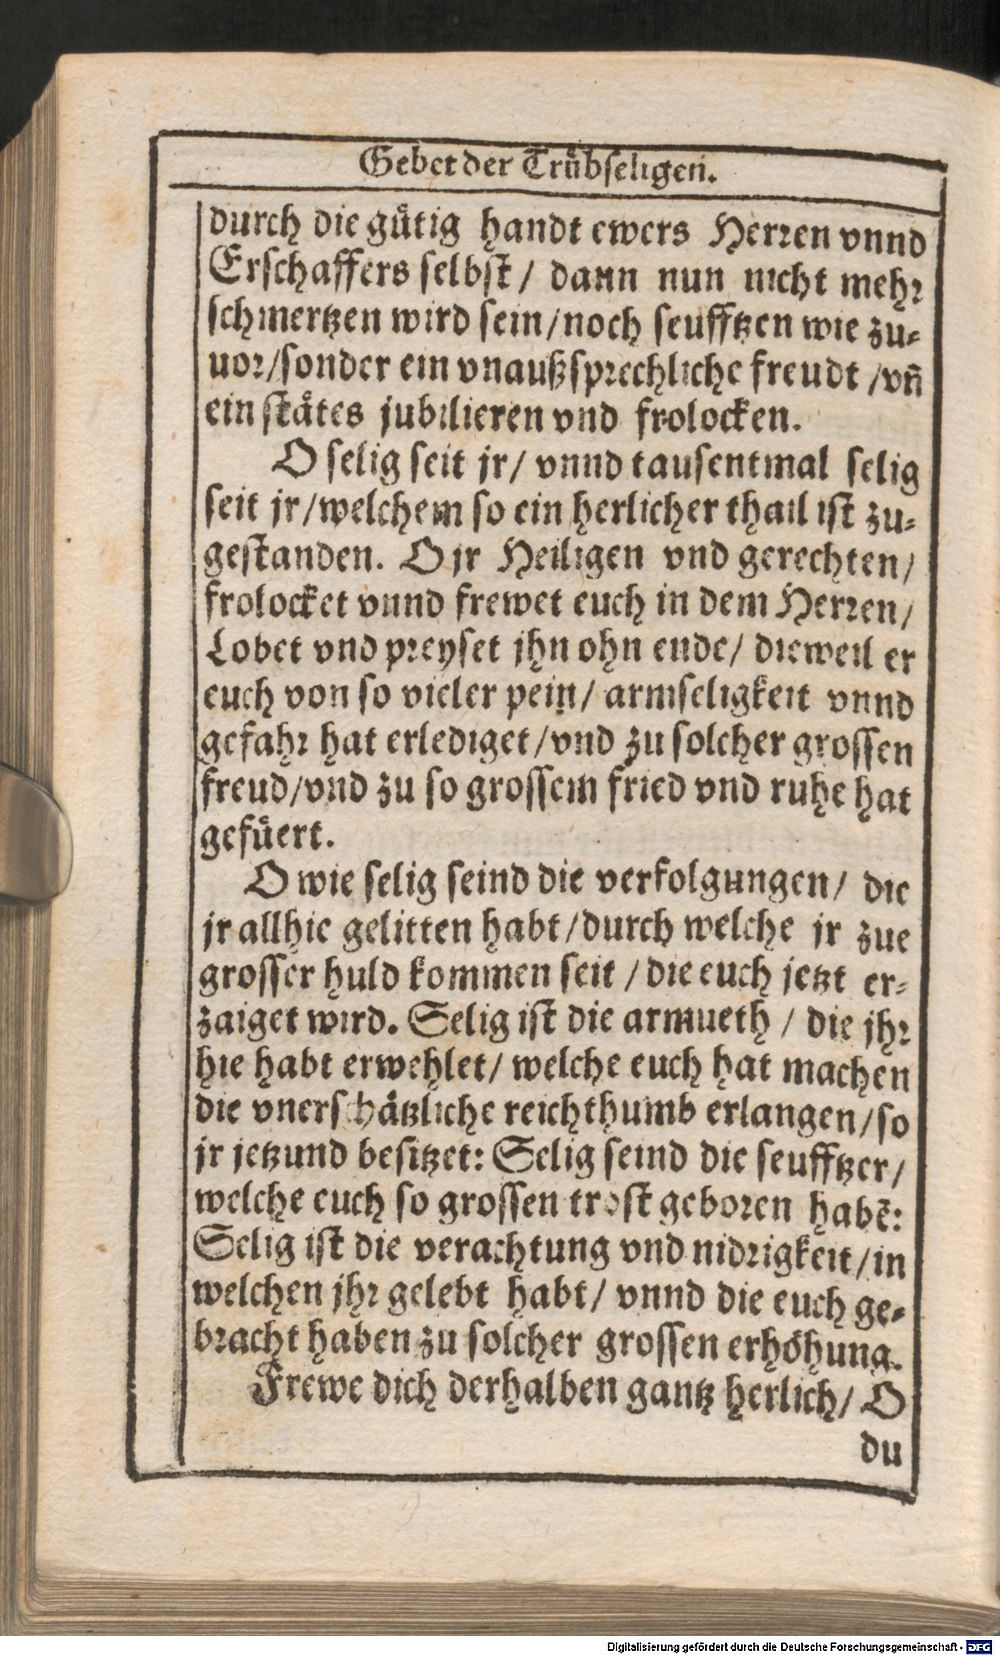 Gebet der Trübseligen.
durch die gütig handt ewers Herren vnnd
Erschaffers selbst / dann nun nicht mehr
schmertzen wird sein/noch seufftzen wie zu-
uor/sonder ein vnaußsprechliche freudt /vñ
ein stätes jubilieren vnd frolocken.
O selig seit jr/ vnnd tausentmal selig
seit jr/welchem so ein herlicher thail ist zu-
gestanden. O jr Heiligen vnd gerechten/
frolocket vnnd frewet euch in dem Herren/
Lobet vnd preyset jhn ohn ende/ dieweil er
euch von so vieler pein/ armseligkeit vnnd
gefahr hat erlediget/vnd zu solcher grossen
freud/vnd zu so grossem fried vnd ruhe hat
gefüert.
O wie selig seind die verfolgungen/ die
jr allhie gelitten habt/durch welche jr zue
grosser huld kommen seit / die euch jetzt er-
zaiget wird. Selig ist die armueth / die jhr
hie habt erwehlet/ welche euch hat machen
die vnerschätzliche reichthumb erlangen/so
jr jetzund besitzet: Selig seind die seufftzer/
welche euch so grossen trost geboren habẽ:
Selig ist die verachtung vnd nidrigkeit/in
welchen jhr gelebt habt/ vnnd die euch ge-
bracht haben zu solcher grossen erhöhung.
Frewe dich derhalben gantz herlich/ O
du
Digitalisierung gefördert durch die Deutsche Forschungsgemeinschaft - DFG